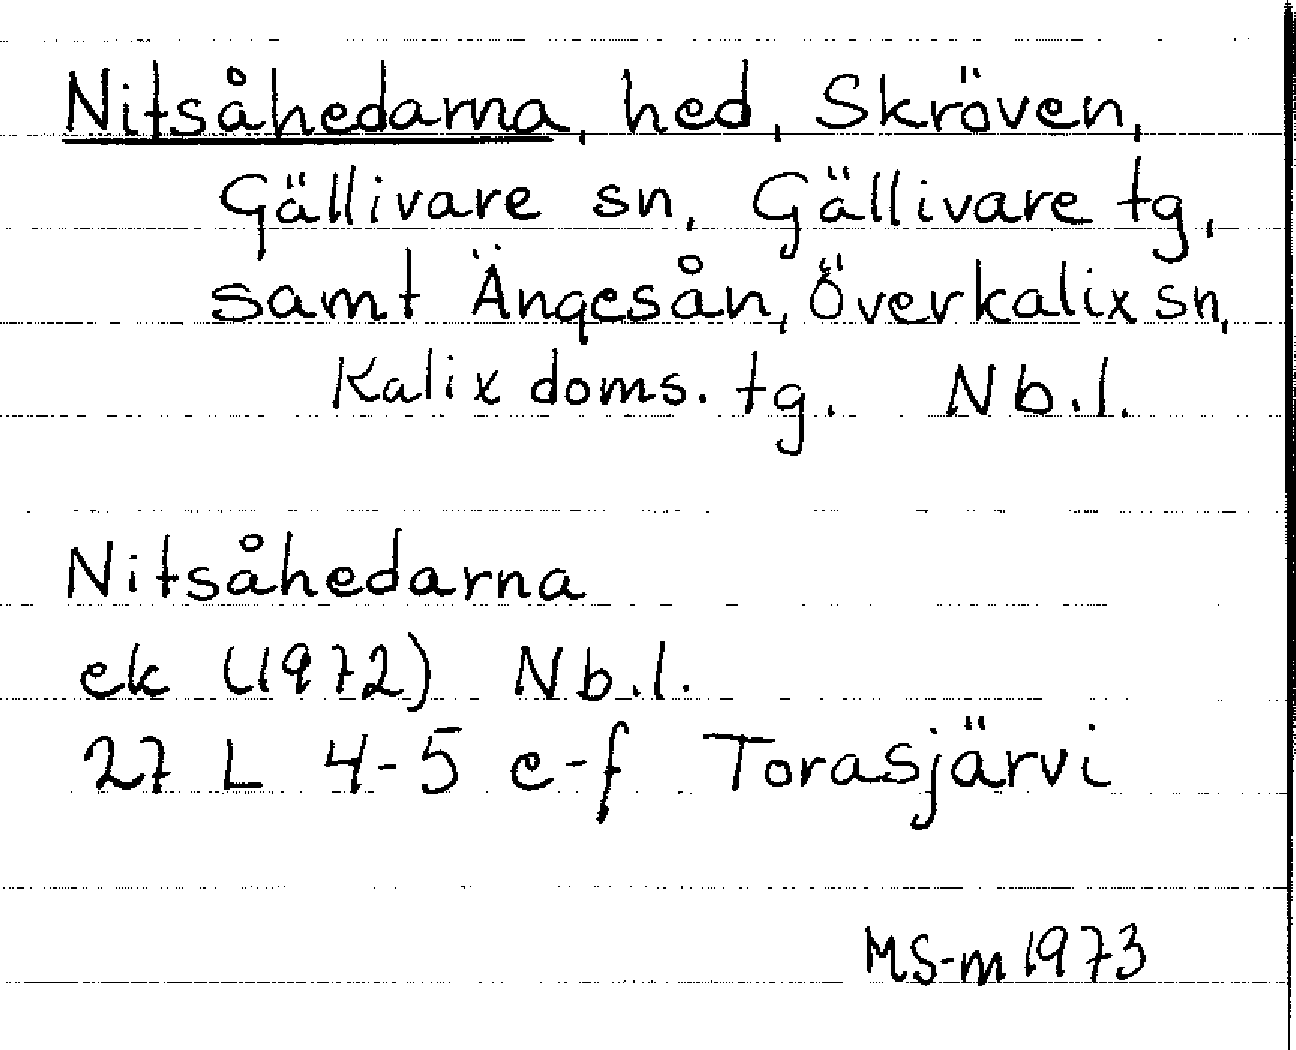 Nitsåhedarna, hed, Skröven,
Gällivare sn, Gällivare tg,
samt Ängesån, Överkalix sn,
Kalix doms. tg. Nb.l.
Nitsåhedarna
ek (1972) Nb.l.
27 L 4-5 e-f Torasjärvi
MS-m 1973